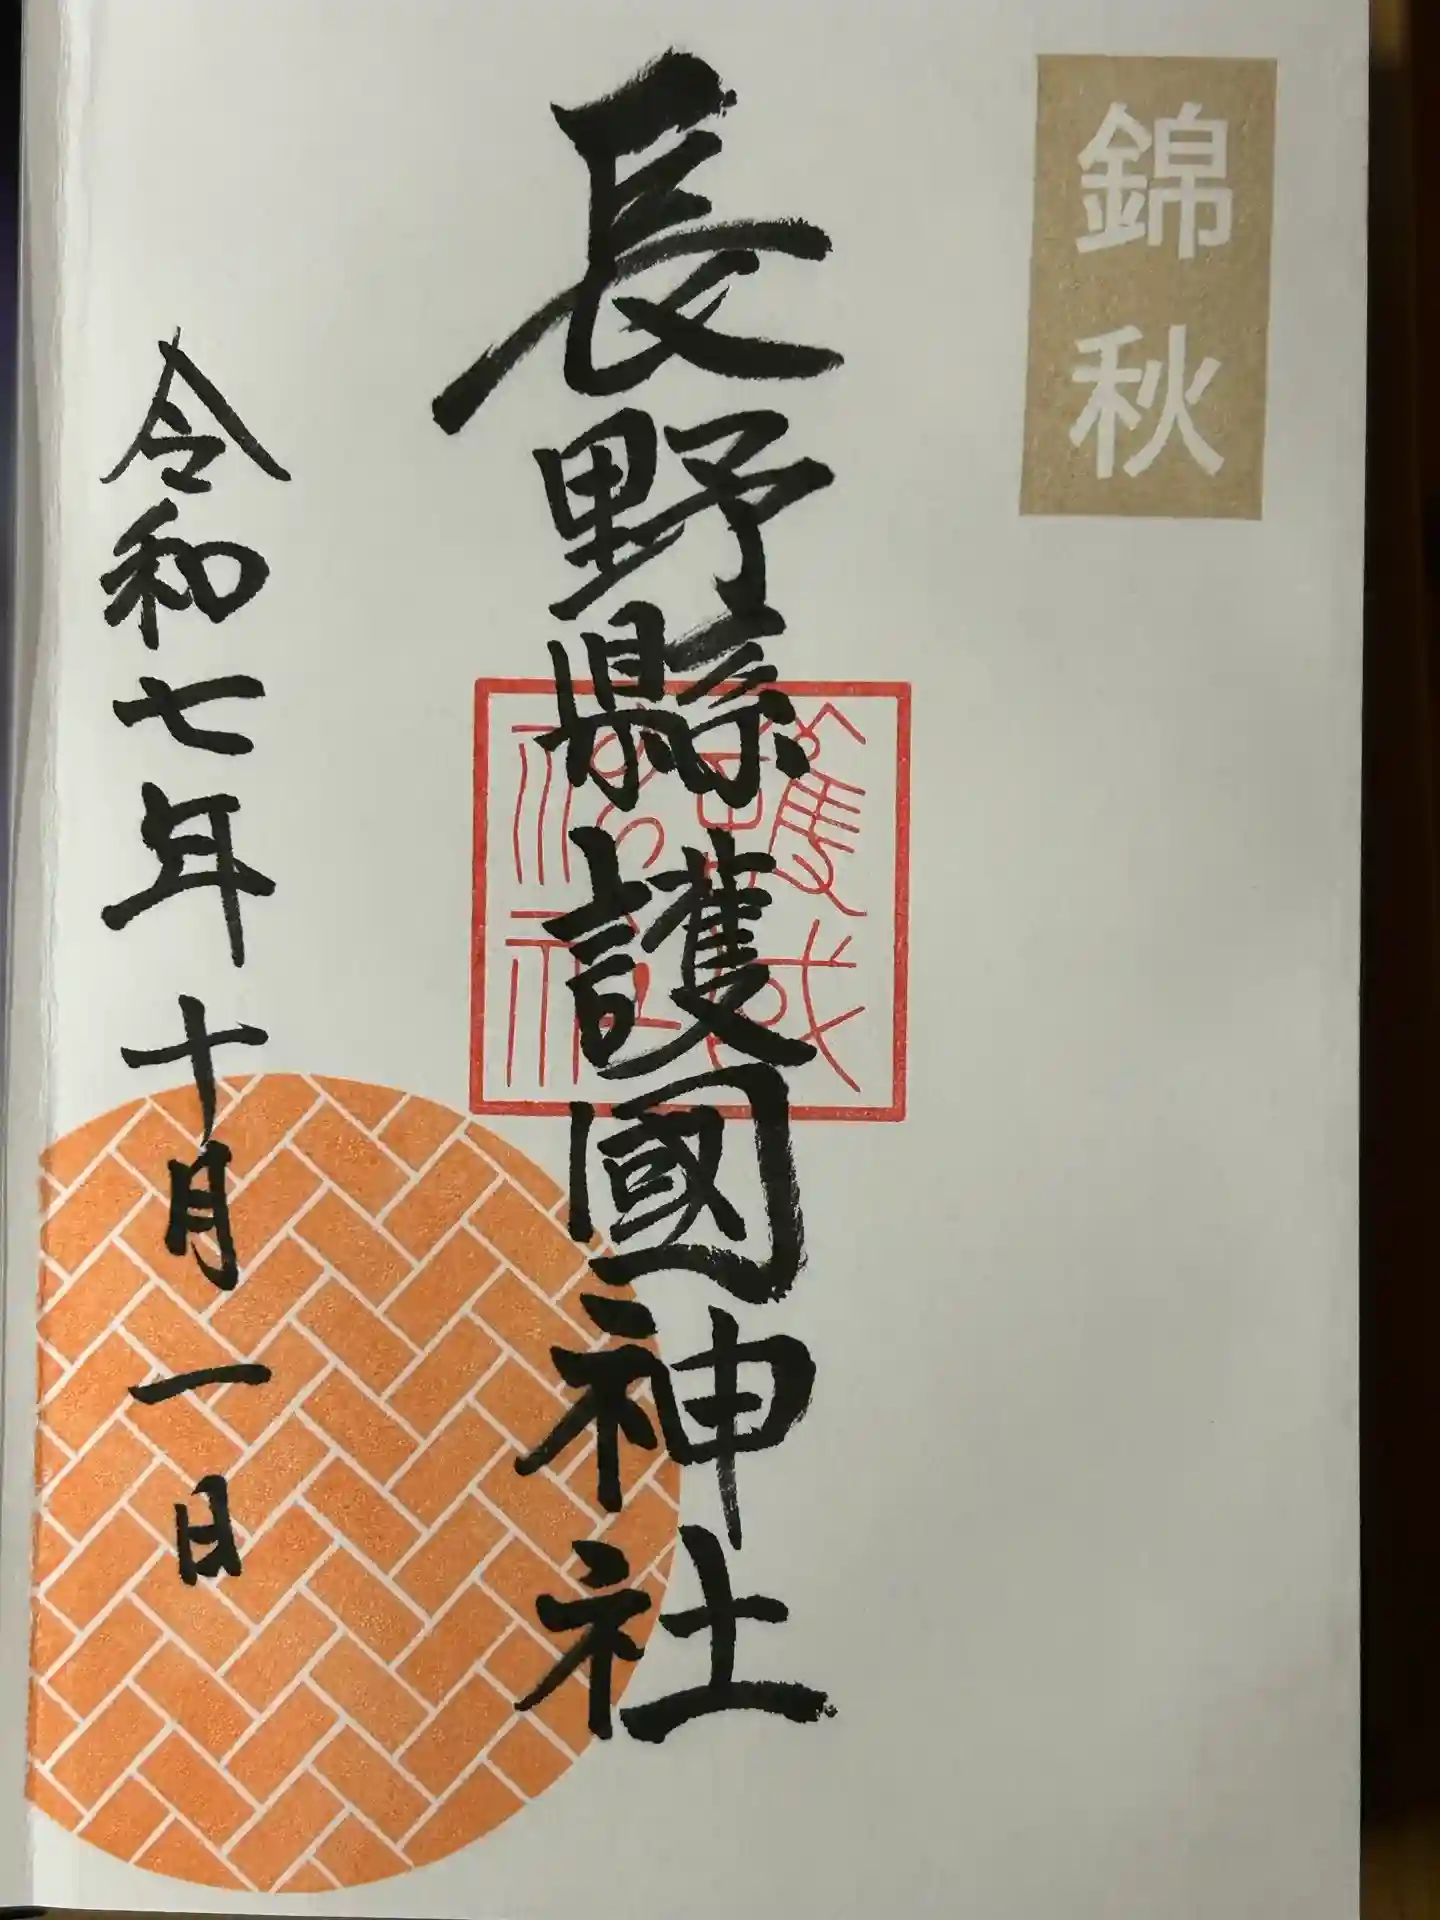 錦秋
長野縣護國神社
令和七年十月一日